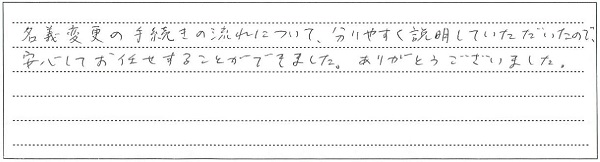 名義変更の手続きの流れについて、分りやすく説明していただいたので、
安心してお任せすることができました。ありがとうございました。